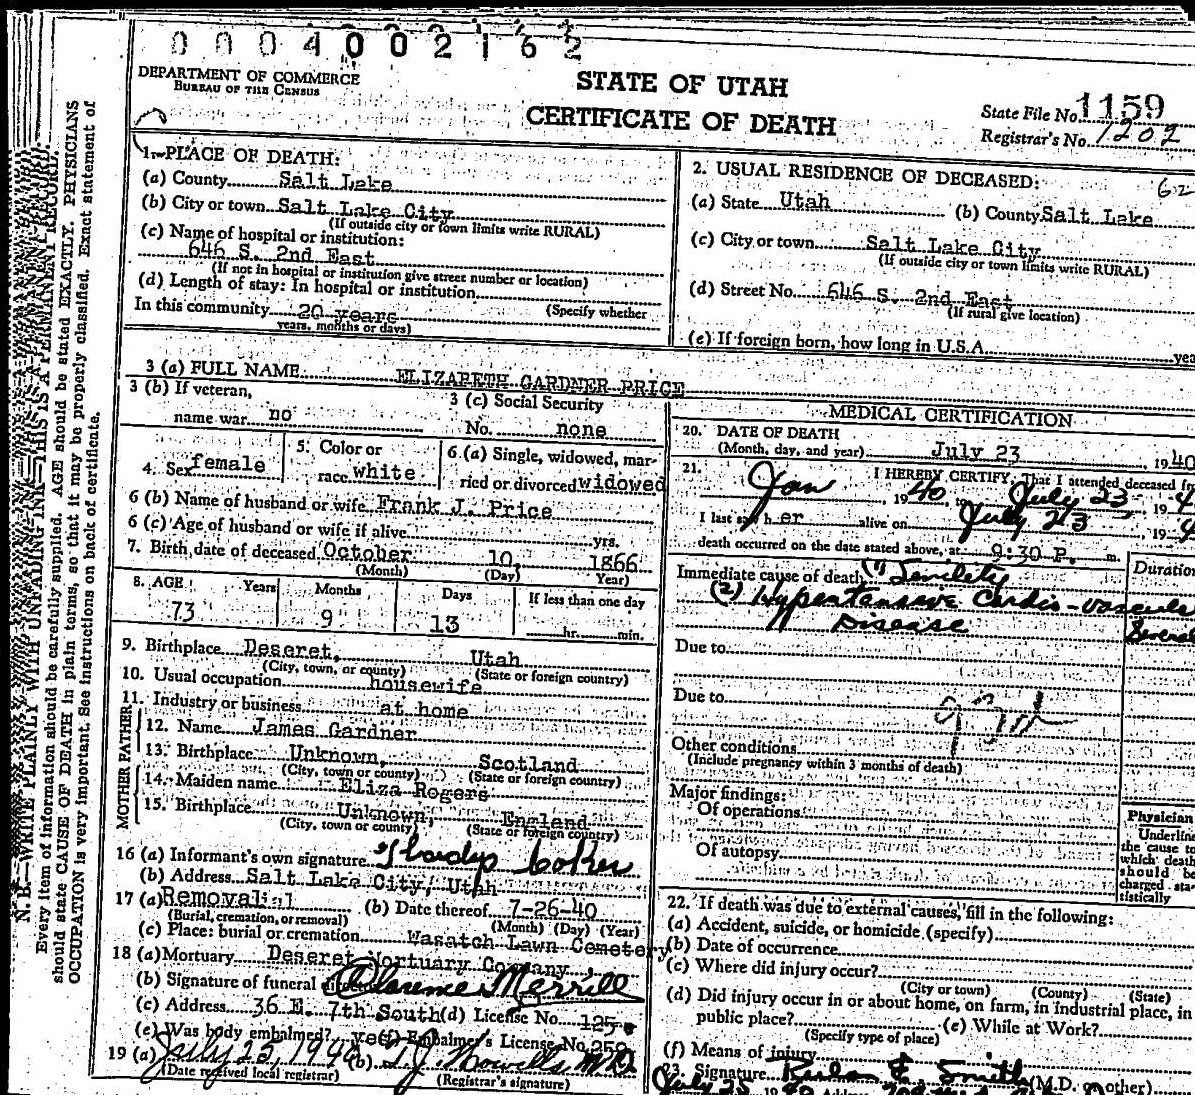 0 0 0 4 0 0 2 1 6 2
DEPARTMENT OF COMMERCE
BUREAU OF THE CENSUS
STATE OF UTAH
CERTIFICATE OF DEATH
State File No. 1159
Registrar's No. 1202
1. PLACE OF DEATH:
(a) County Salt Lake
(b) City or town Salt Lake City
(If outside city or town limits write RURAL)
(c) Name of hospital or institution:
646 S. 2nd East
(If not in hospital or institution give street number or location)
(d) Length of stay: In hospital or institution
In this community 20 years (Specify whether
years, months or days)
2. USUAL RESIDENCE OF DECEASED: 62
(a) State Utah (b) County Salt Lake
(c) City or town Salt Lake City
(If outside city or town limits write RURAL)
(d) Street No. 646 S. 2nd East
(If rural give location)
(e) If foreign born, how long in U.S.A. yea
3 (a) FULL NAME ELIZABETH GARDNER PRICE
3 (b) If veteran,
name war no
3 (c) Social Security
No. none
4. Sex female
5. Color or
race white
6 (a) Single, widowed, mar-
ried or divorced widowed
6 (b) Name of husband or wife Frank J. Price
6 (c) Age of husband or wife if alive yrs.
7. Birth date of deceased October 10, 1866
(Month) (Day) Year)
8. AGE Years Months Days If less than one day
73 9 13 hr. min.
9. Birthplace Deseret, Utah
(City, town, or county) (State or foreign country)
10. Usual occupation housewife
11. Industry or business at home
FATHER
12. Name James Gardner
13. Birthplace Unknown, Scotland
(City, town or county) (State or foreign country)
MOTHER
14. Maiden name Eliza Rogers
15. Birthplace Unknown, England
(City, town or county) (State or foreign country)
16 (a) Informant's own signature
(b) Address Salt Lake City, Utah
17 (a) Removal (b) Date thereof 7-26-40
(Burial, cremation, or removal) (Month) (Day) (Year)
(c) Place: burial or cremation Wasatch Lawn Cemetery
18 (a) Mortuary Deseret Mortuary Company
(b) Signature of funeral Clarence Merrill
(c) Address 36 E. 7th South (d) License No. 125
(e) Was body embalmed? yes (f) Embalmer's License No. 259
19 (a) July 25, 1940 (b) M.D.
(Date received local registrar) (Registrar's signature)
MEDICAL CERTIFICATION
20. DATE OF DEATH
(Month, day, and year) July 23 1940
21. I HEREBY CERTIFY, That I attended deceased fr
Jan 1940 to July 23, 19 4
I last saw h er alive on July 23 19 4
death occurred on the date stated above, at 9:30 P. m.
Duration
Immediate cause of death (1) Senility
(2) Hypertensive Cardio-vascular
Disease
Due to
Due to
Other conditions
(Include pregnancy within 3 months of death)
Major findings:
Of operations
Of autopsy
Physician
Underline
the cause to
which death
should be
charged sta-
tistically
22. If death was due to external causes, fill in the following:
(a) Accident, suicide, or homicide (specify)
(b) Date of occurrence
(c) Where did injury occur?
(City or town) (County) (State)
(d) Did injury occur in or about home, on farm, in industrial place, in
public place? (e) While at Work?
(Specify type of place)
(f) Means of injury
23. Signature Smith (M.D. or other)
July 25 1940 Address
N. B.—WRITE PLAINLY WITH UNFADING INK—THIS IS A PERMANENT RECORD.
Every item of information should be carefully supplied. AGE should be stated EXACTLY. PHYSICIANS
should state CAUSE OF DEATH in plain terms, so that it may be properly classified. Exact statement of
OCCUPATION is very important. See instructions on back of certificate.